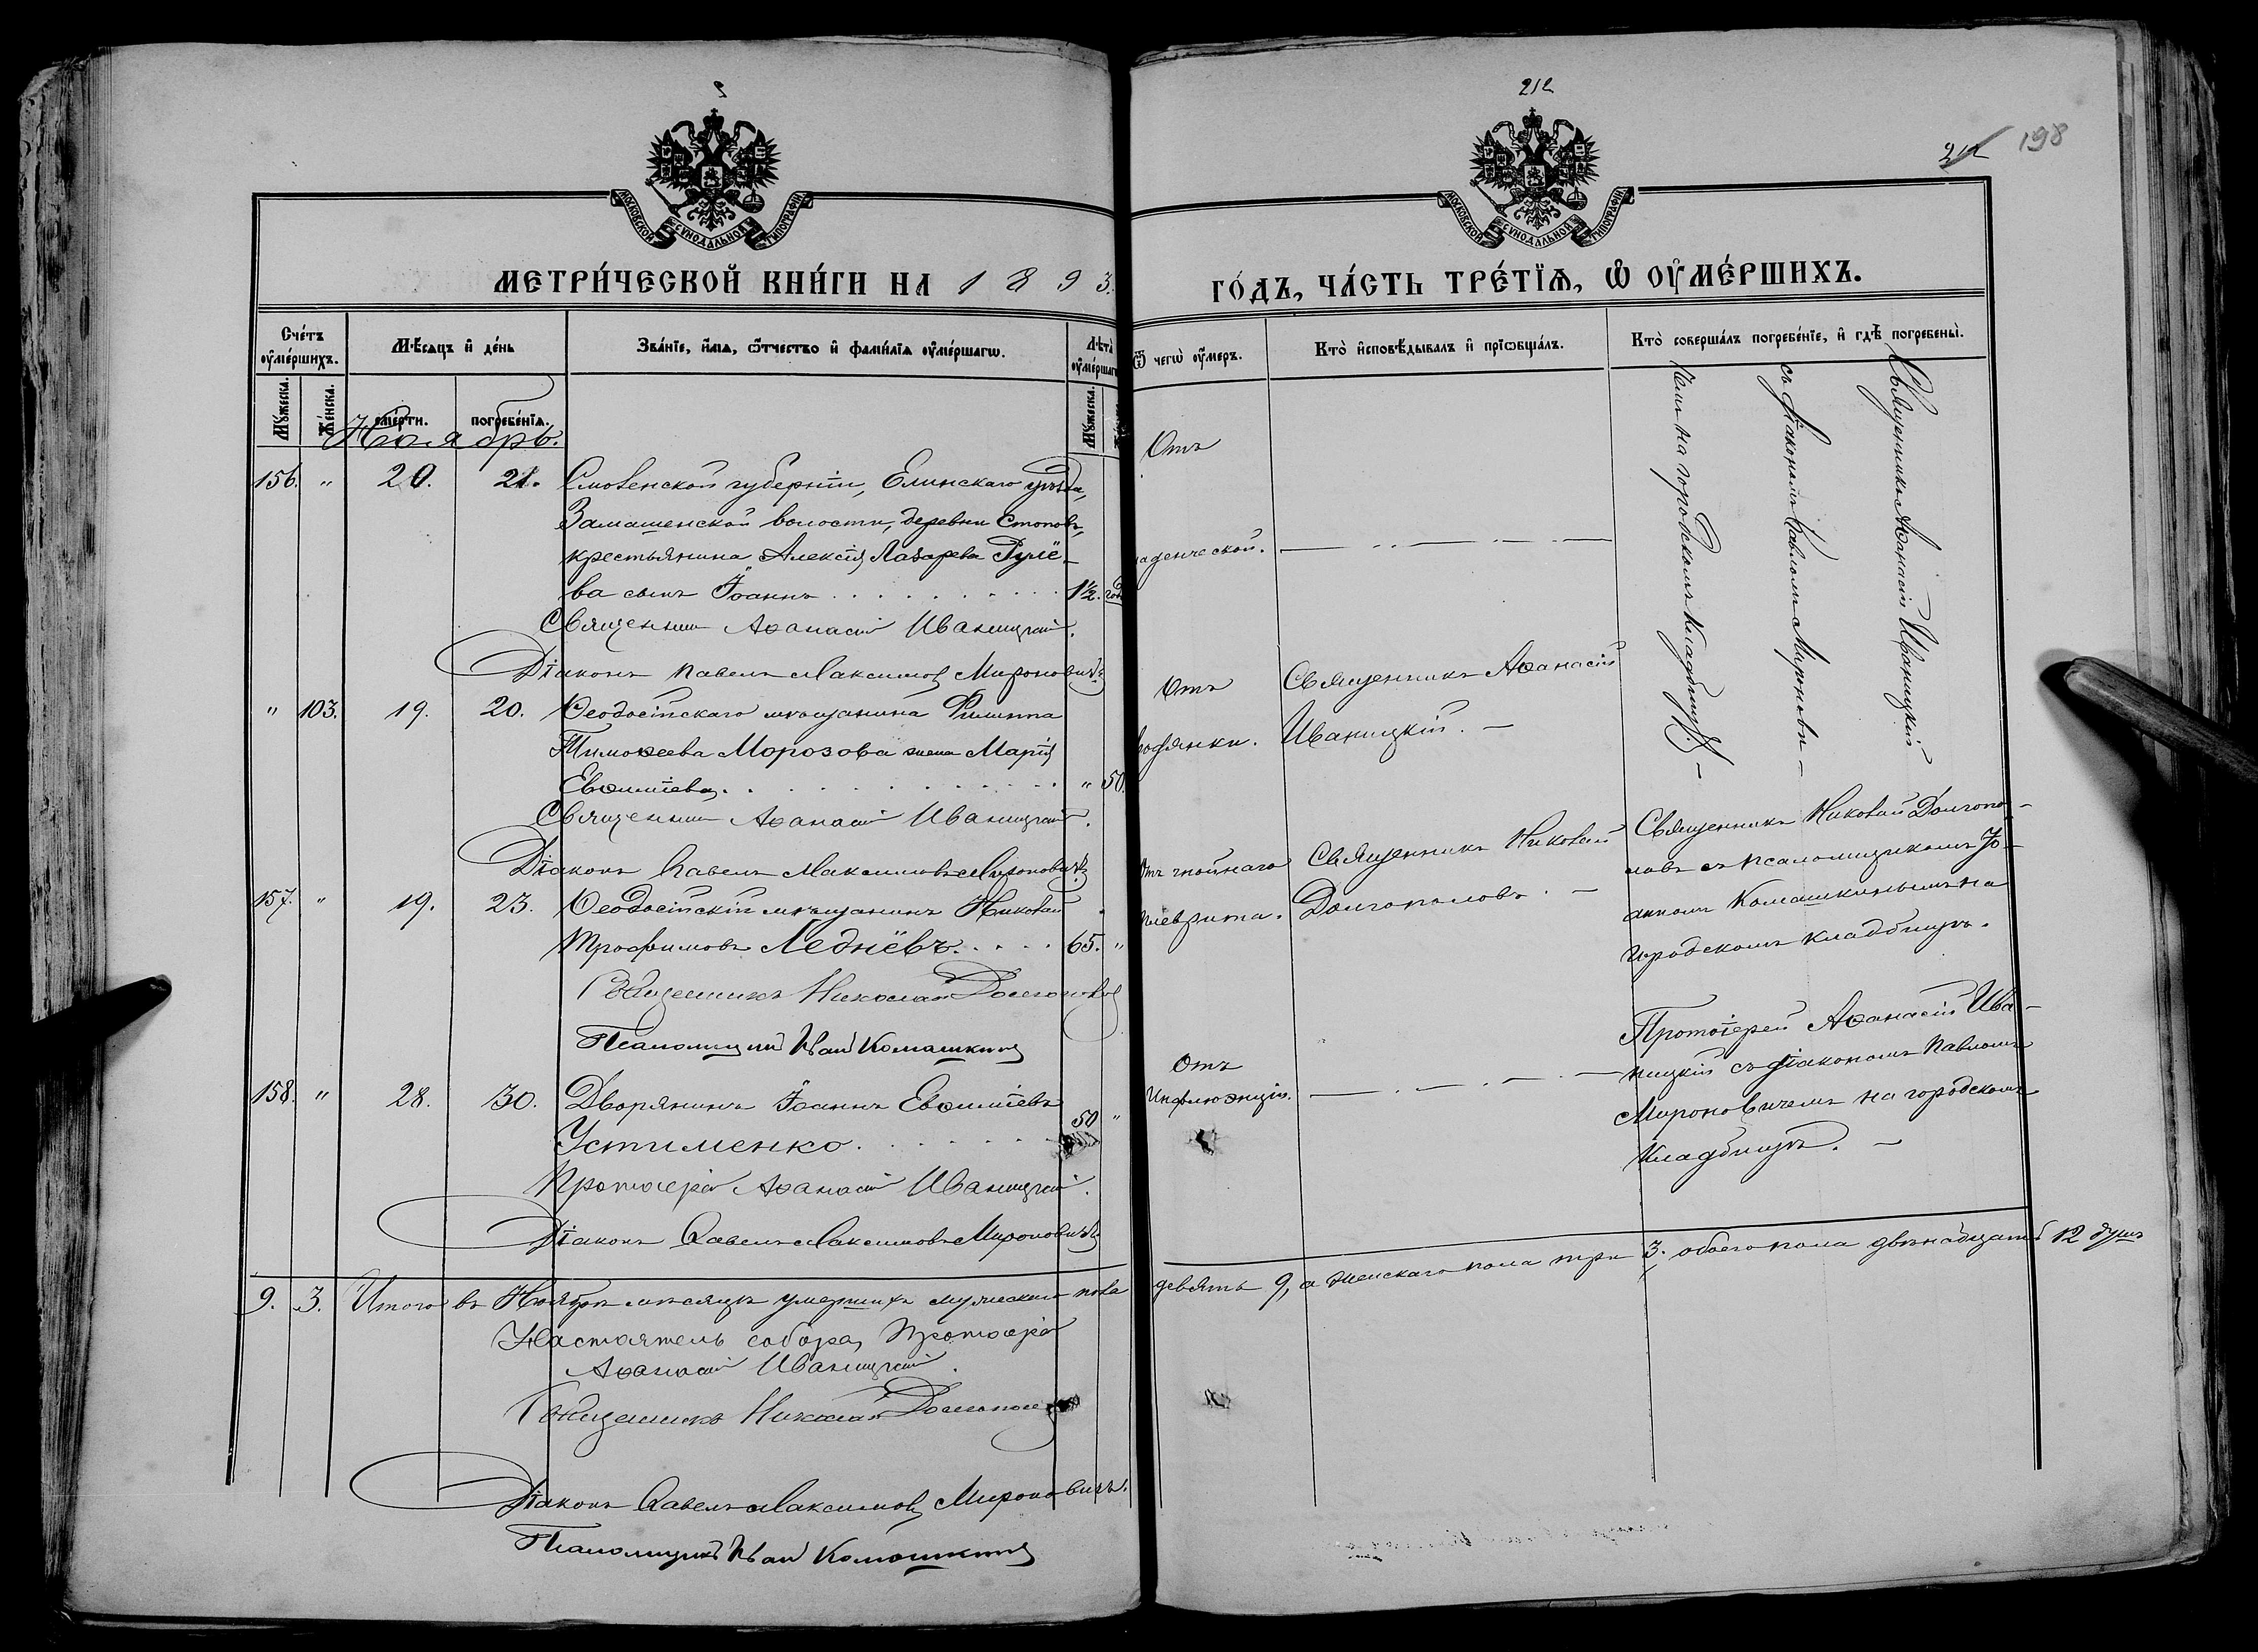 212
212 198
МОСКОВСКОЙ СѴНОДАЛЬНОЙ ТИПОГРАФІИ
МОСКОВСКОЙ СѴНОДАЛЬНОЙ ТИПОГРАФІИ
МЕТРИ́ЧЕСКОЙ КНИ́ГИ НА 1893.
ГО́ДЪ, ЧА́СТЬ ТРЕ́ТІѦ, Ѡ ОУМЕ́РШИХЪ.
Сче́тъ оуме́ршихъ.
Мѣсяцъ и де́нь
Зва́нїе, и́мѧ, ѿтчество и фами́лїѧ оуме́ршагѡ.
Лѣта̀ оуме́ршагѡ
Ѿ чегѡ̀ оу́меръ.
Кто̀ исповѣ́дывалъ и прїѡбща́лъ.
Кто̀ соверша́лъ погребе́нїе, и гдѣ̀ погребены̀.
Мꙋ́жеска. Же́нска.
сме́рти. погребе́нїѧ.
Мꙋ́жеска.
Ноябрь.
156. " 20. 21. Смоленской губерніи, Елинскаго уѣзда,
Замошенской волости, деревни
крестьянина Алексія Лазарева
ва сынъ Іоаннъ 1½. год
Священникъ Аѳанасій Иваницкій.
Діаконъ Павелъ Максимовъ Мироновичъ
Отъ
аденческой.
Священникъ Аѳанасій Иваницкій
съ діакономъ Павломъ Мироновичемъ
на городскомъ кладбищѣ
" 103. 19. 20. Ѳеодосійскаго мѣщанина Филиппа
Тимоѳеева Морозова жена Марія
Евѳиміева " 50.
Священникъ Аѳанасій Иваницкій.
Діаконъ Павелъ Максимовъ Мироновичъ
Отъ
Священникъ Аѳанасій
Иваницкій.
157. " 19. 23. Ѳеодосійскій мѣщанинъ Николай
Трофимовъ Леднёвъ. 65. "
Священникъ Николай Долгополовъ
Псаломщикъ Иван Комашкинъ
Отъ гнойнаго
плеврита.
Священникъ Николай
Долгополовъ.
Священникъ Николай Долгопо-
ловъ съ псаломщикомъ Іо-
анномъ Комашкинымъ на
городскомъ кладбищѣ.
158. " 28. 30. Дворянинъ Іоаннъ Евѳиміевъ
Устименко. 50 "
Протоіерей Аѳанасій Иваницкій.
Діаконъ Павелъ Максимовъ Мироновичъ
Отъ
Инфлюэнціи.
Протоіерей Аѳанасій Ива-
ницкій съ діакономъ Павломъ
Мироновичемъ на городскомъ
кладбищѣ.
9. 3. Итого въ Ноябрѣ мѣсяцѣ умершихъ мужескаго пола девять 9, а женскаго пола три 3, обоего пола двѣнадцать 12 душъ
Настоятель собора, Протоіерей
Аѳанасій Иваницкій.
Священникъ Николай Долгополовъ
Діаконъ Павелъ Максимовъ Мироновичъ.
Псаломщикъ Иван Комашкинъ